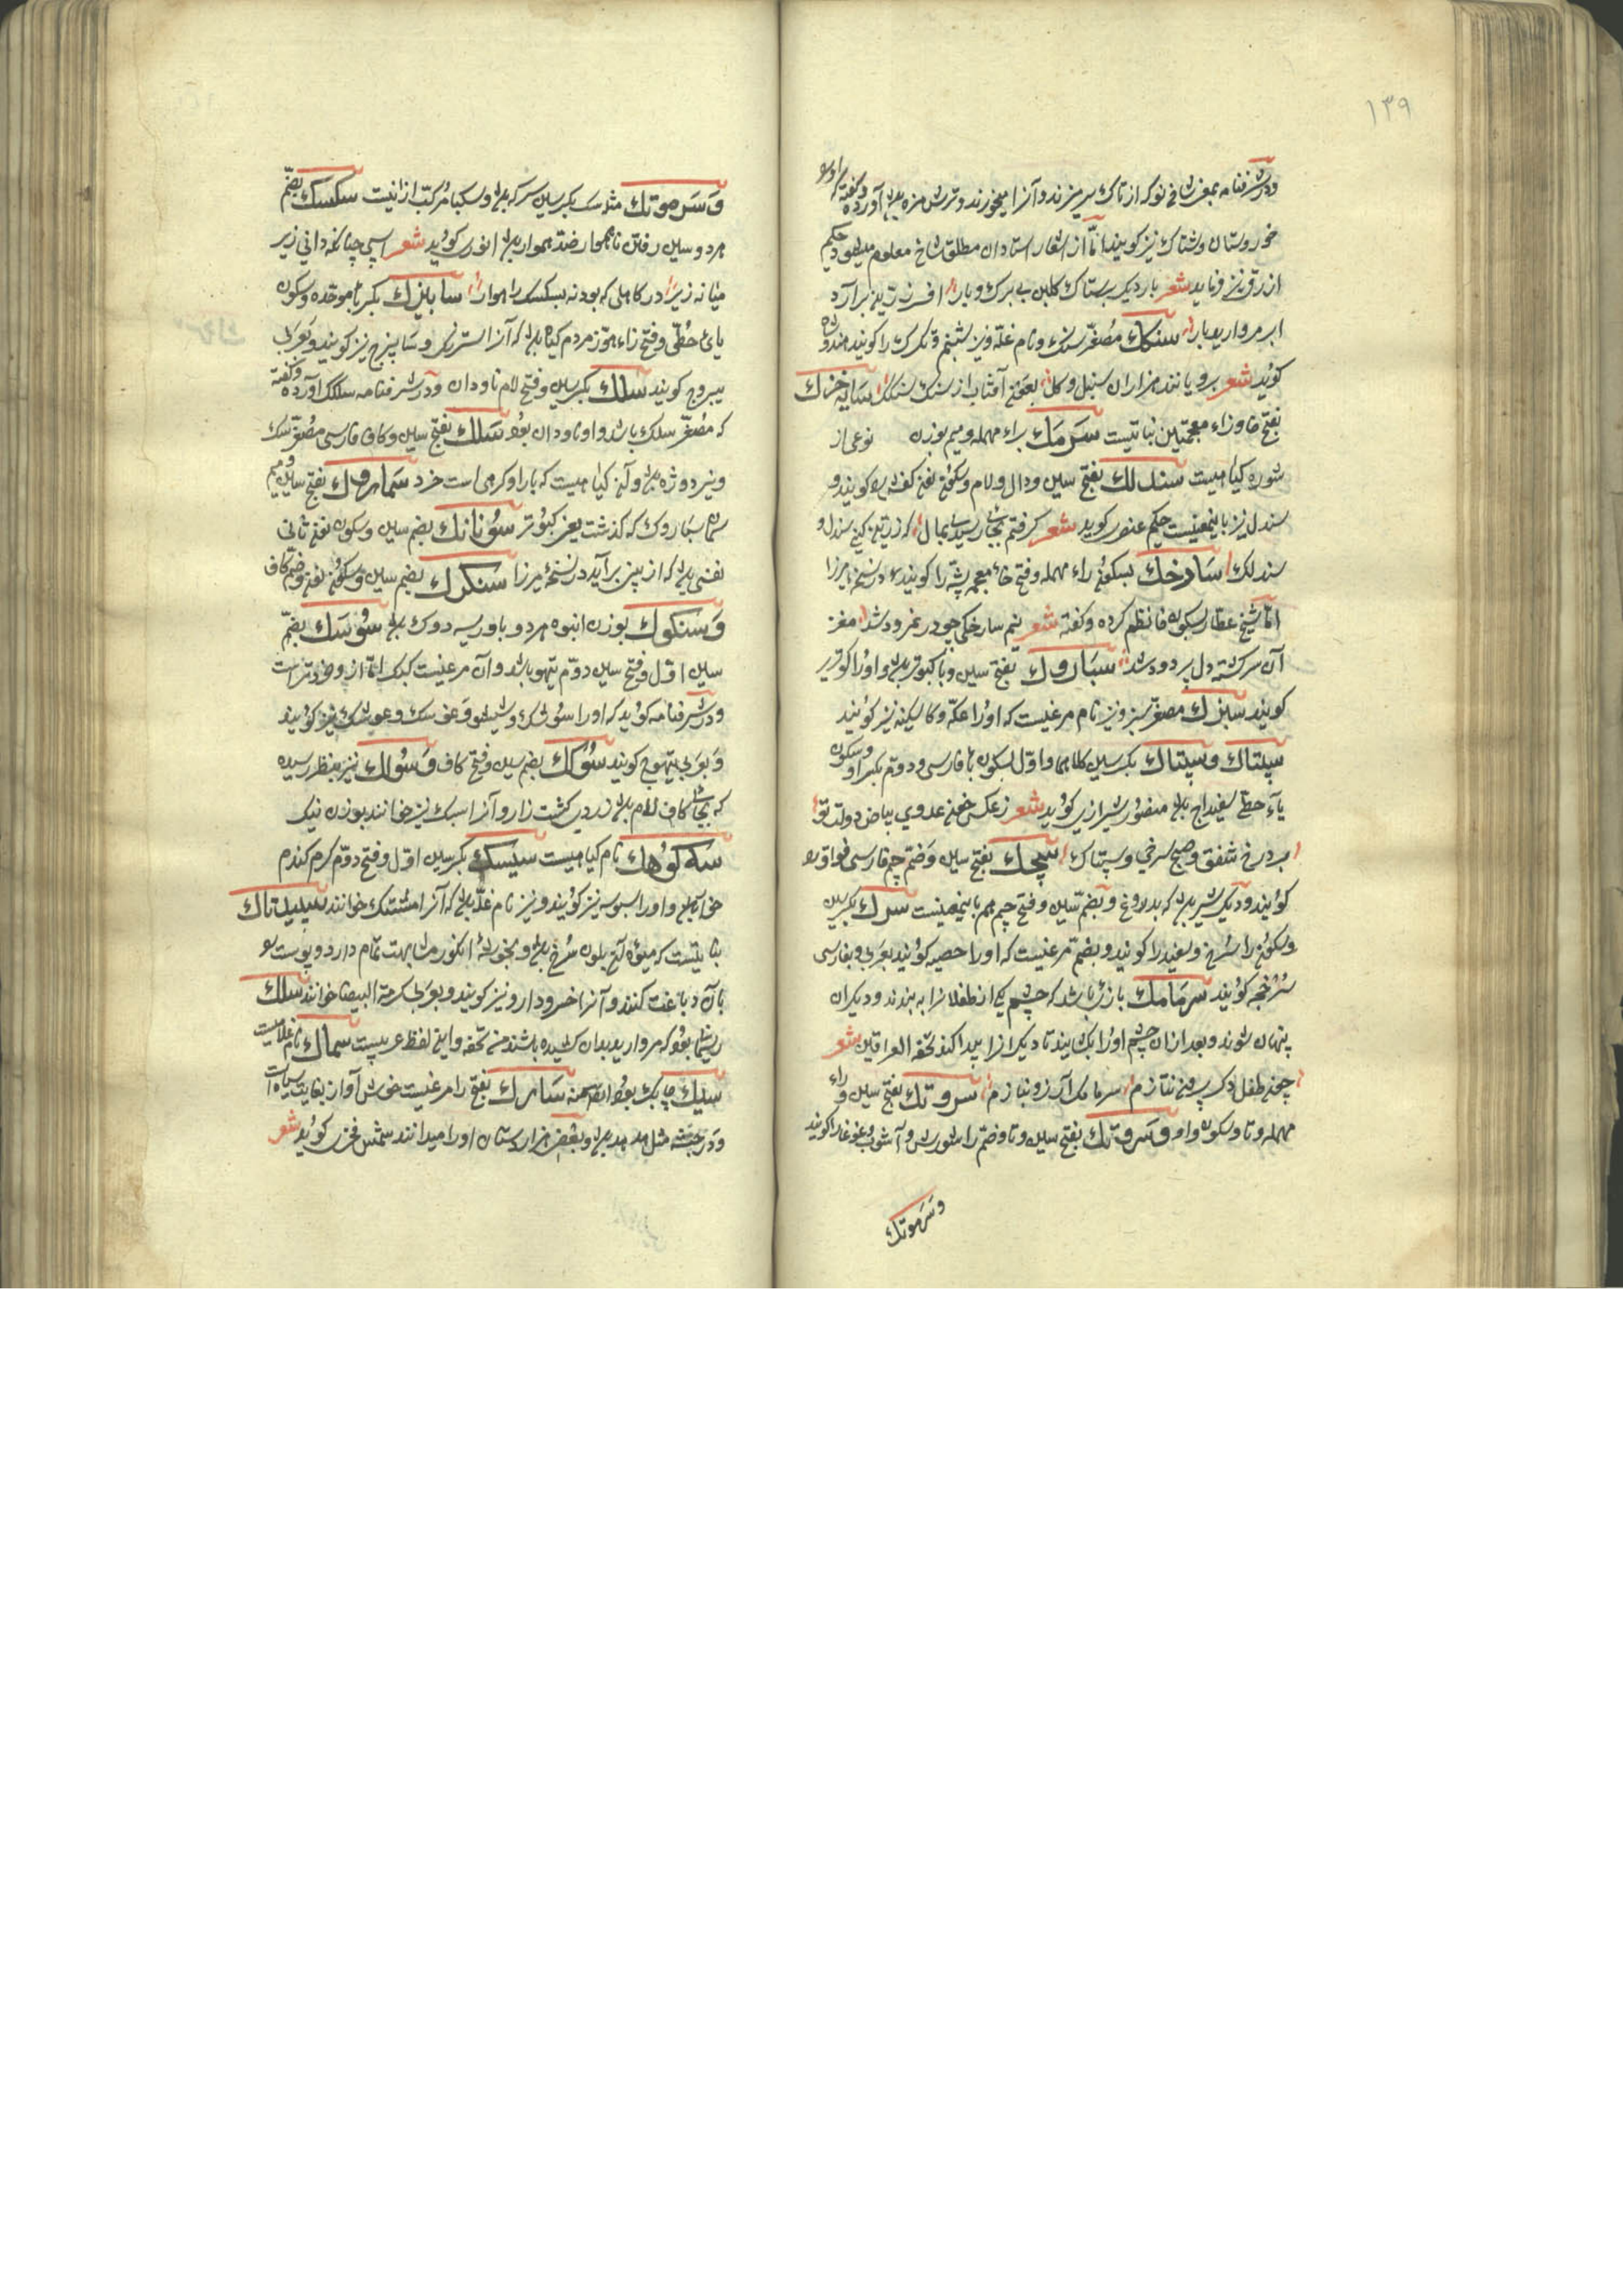 ١٣٩
ودر شرفنامه بمعنی شاخی نو که از تاک سر میزند و آنرا میخورند و ترش مزه باشد آورده و گفته که او را
خوروستان و شتاک نیز گویند امّا از اشعار استادان مطلق شاخ معلوم میشود حکیم
ازرقی نیز فرماید شعر بار دیگر بستاک گلبن بی برک و بار افسر زرین برآرد
ابر مروارید بار سنگک مصغّر سنک و نام غلّه و نیز شبنم و تکرک را گویند هندوشاه
گوید شعر برویانند هزاران سنبل و گل بعون آفتاب از سنک سنکک سایه خزک
بفتح خا و زاء معجمتین نباتیست سرمک براء مهمله و میم بوزن نوعی از
شوره گیاهیست سندلک بفتح سین و دال و لام و سکون نون کفش را گویند و
سندل نیز باینمعنیست حکیم عنصری گوید شعر گرفتم بجائی رسیدی بمال که زرین کنی سندل و
سندلک سارخک بسکون راء مهمله و فتح خاء معجمه پشه را گویند در نسخه میرزا
امّا شیخ عطار بسکون خا نظم کرده و گفته شعر نیم سارخکی چو در نمرود شد مغز
آن سرکشته دل پر دود شد سباروک بفتح سین و با کبوتر باشد و او را کوتر
گویند سبزک مصغّر سبز و نیز نام مرغیست که او را عکّه و کاسکینه نیز گویند
سپتاک و سپیتاک بکسر سین کلاهما و اوّل بسکون با فارسی و دوّم بکسر او و سکون
یاء حطّی سفیداج باشد منصور شیرازی گوید شعر ز عکس خون عدوی بیاض دولت تو
برد رخ شفق و صبح سرخی و سپتاک سچک بفتح سین و ضم چم فارسی فواق را
گویند و دیک شیر باشد که بدل دوغ و بضم سین و فتح چم هم باینمعنیست سرک بکسر سین
و سکون را سرخ و سفید را گویند و بضم مرغیست که او را حصیه گویند بعربی و بفارسی
سرخجه گویند سرمامک بازئی باشد که چشم یکی از طفلانرا به بندند و دیگران
پنهان شوند و بعد از ان چشم او را بکشایند تا دیگرانرا پیدا کند تحفة العراقین شعر
چون طفل دکر برون نتازم سرمامک آرزو نبازم سروتک بفتح سین و راء
مهمله و تا و سکون واو و سروتک بفتح سین و تا و ضم را شورش و آشوب و غوغا را گویند
و سرموتک
و سرموتک مثله سک بکسر سین سرکه باشد و سکبا مرکّب ازانیست سکسک بضمّ
هر دو سین رفتن ناهموار ضد هموار باشد انوری گوید شعر اسپی چنانکه دانی زیر
میانه زیر در کاهلی که بود نه سکسک راهوار سابیزک بکسر با موحّده و سکون
یاء حُطّی و فتح زاء هوّز مردم گیاه باشد که آنرا استرنک و سابیزج نیز گویند و بعربی
یبروج گویند سلک بکسر سین و فتح لام ناودان و در شرفنامه سلکک آورده و گفته
که مصغّر سلک باشد و او ناودان بود سَلک بفتح سین و کاف فارسی مصغّر سک
و نیز دوژه باشد و آن گیاهیست که بار او کرهی است خرد سماروک بفتح سین و میم
همان سباروک که گذشت یعنی کبوتر سونانک بضم سین و سکون نون ثانی
نفسی باشد که از بینی برآید در نسخه میرزا سنکرک بضم سین و سکون نون و ضم کاف
و سنکوک بوزن انبوه هر دو باد ریسه دوک باشد سوسک بضمّ
سین اوّل و فتح سین دوّم تیهو باشد و آن مرغیست کبک امّا ازو خردتر است
و در شرفنامه گوید که او را سوسک و شیشو و عوسک و عوشک نیز گویند
و بعربی تیهوج گویند سوک بضم سین و فتح کاف و سوک نیز بنظر رسیده
که بجای کاف لام باشد زردی کشت زار و آنرا سبک نیز خوانند بوزن نیک
سه کوهک نام گیاهیست سیسک بکسر سین اوّل و فتح دوّم کرم گندم
خوار باشد و او را سبوسه نیز گویند و نیز نام غلّه باشد که آنرا مشتک خوانند سپیدتاک
نباتیست که میوه آن بلون سُرخ باشد و بخوشه انگور مشابهت تمام دارد و پوست را
بآن دباغت کنند و آنرا خسرودارو نیز گویند و بعربی کرمة البیضا خوانند سلک
ریشمان بود که مروارید بدان کشیده باشند من تحفه و این لفظ عربیست سماک نام علامیست
سیک چابک بود ایضا منه سارک بفتح را مرغیست خوش آواز بغایت سیاه است
و در جثّه مثل هدهد باشد و بعضی هزاردستان او را میدانند شمس فخری گوید شعر